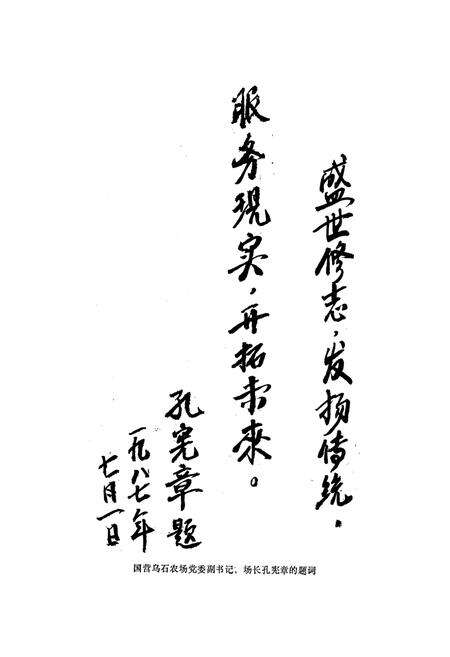 盛世修志，发扬传统．
服务现实，开拓未来。
孔宪章题
一九八七年
七月一日
国营乌石农场党委副书记、场长孔宪章的题词